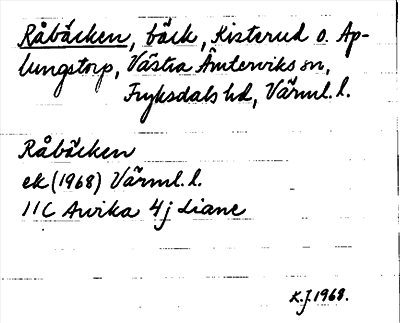 Råbäcken, bäck, Kisterud o. Ap-
lungstorp, Västra Ämterviks sn,
Fryksdals hd, Värml. l.
Råbäcken
ek (1968) Värml. l.
11C Arvika 4j Liane
K.J. 1968.